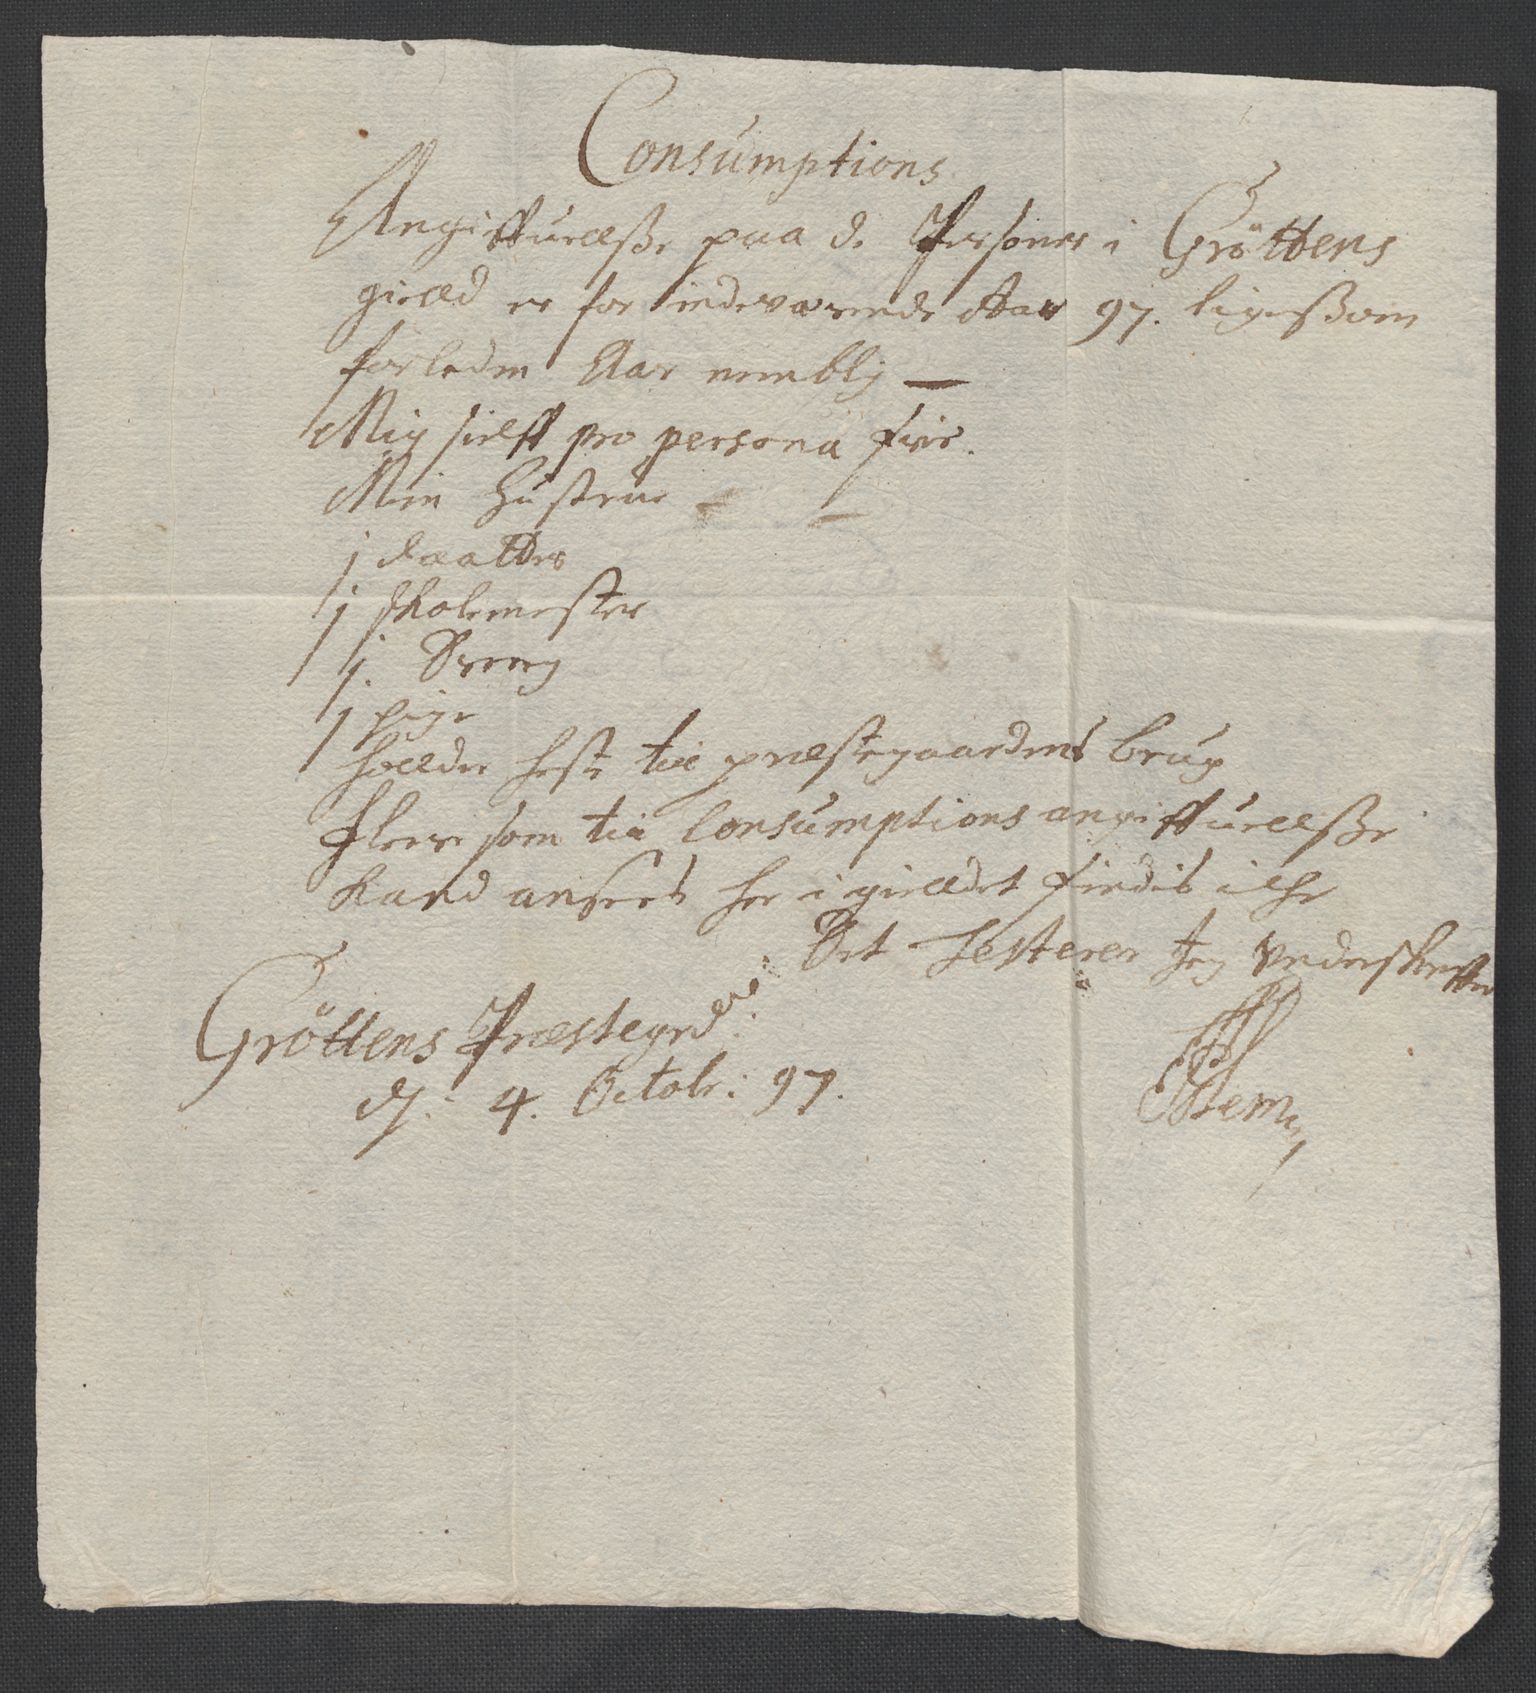 Consumptions
Angiffuelsße paa de Personer i Grøttens
gield er for indeværende Aar 97. ligesßom
forleden Aar nemblig —
Mig sielff pro persona frie.
Min Hustrue —
j daatter
j skolemester
j. Dreng
j pige
holder heste til præstegaardens brug
flere som til Consumptions angiffuelsße
kand ansees her i gieldet findis iche
Det testerer Jeg underskreffuen
Grøttens Præstegrd
dj. 4. Octobr: 97.